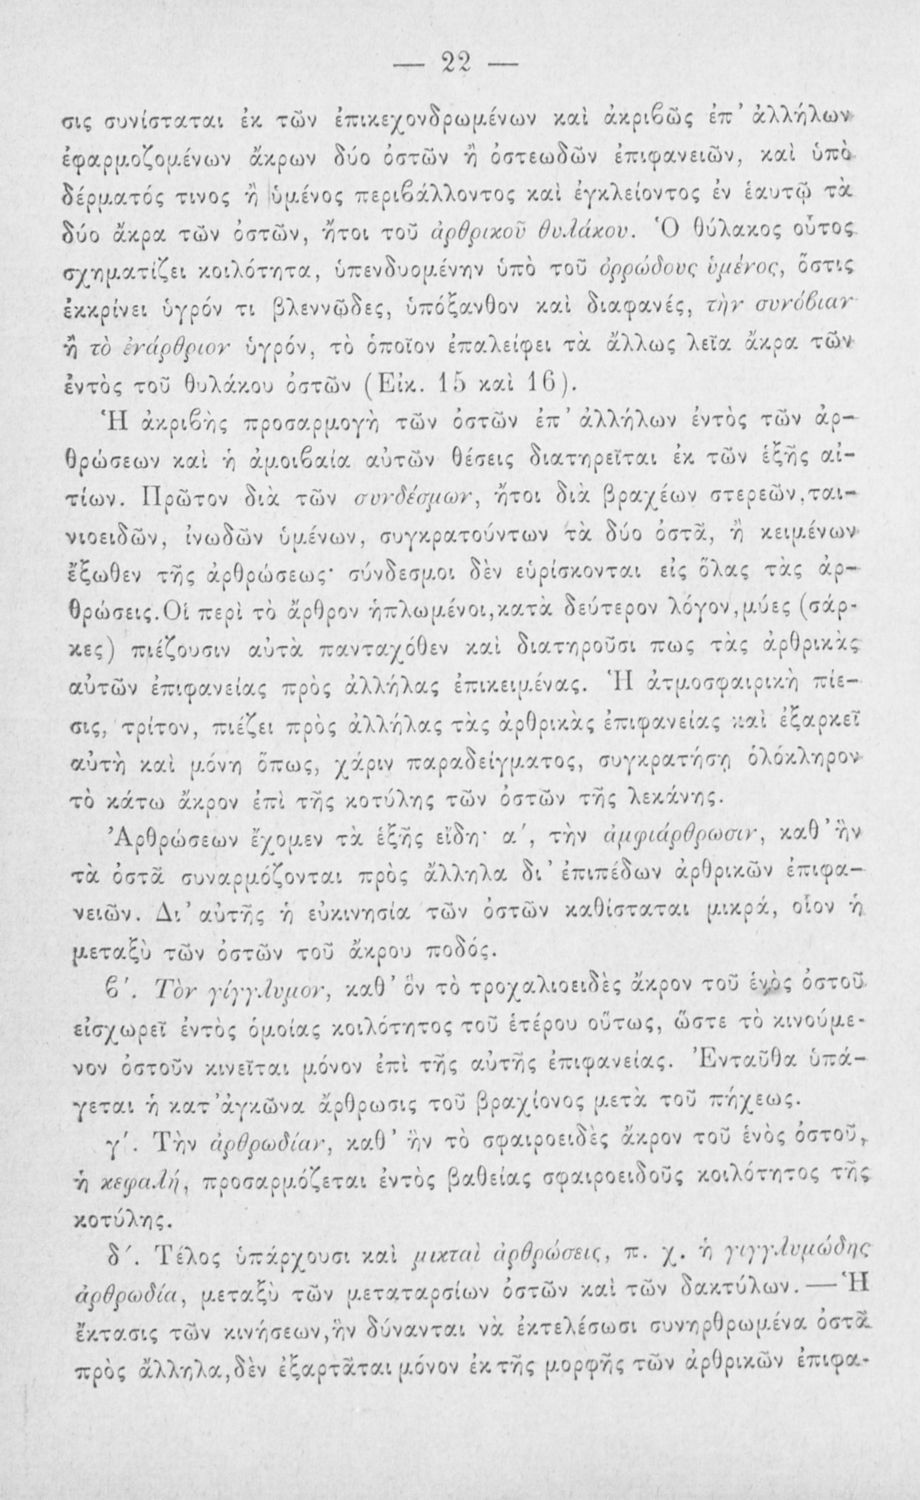 — 22 —
σις συνίσταται ἐκ τῶν ἐπικεχονδρωμένων καὶ ἀκριβῶς ἐπ’ ἀλλήλων
ἐφαρμοζομένων ἄκρων δύο ὀστῶν ἢ ὀστεωδῶν ἐπιφανειῶν, καὶ ὑπὸ
δέρματός τινος ἢ ὑμένος περιβάλλοντος καὶ ἐγκλείοντος ἐν ἑαυτῷ τὰ
δύο ἄκρα τῶν ὀστῶν, ἤτοι τοῦ ἀρθρικοῦ θυλάκου. Ὁ θύλακος οὗτος
σχηματίζει κοιλότητα, ὑπενδυομένην ὑπὸ τοῦ ὀρρώδους ὑμένος, ὅστις
ἐκκρίνει ὑγρόν τι βλεννῶδες, ὑπόξανθον καὶ διαφανές, τὴν συνόβιαν
ἢ τὸ ἐνάρθριον ὑγρόν, τὸ ὁποῖον ἐπαλείφει τὰ ἄλλως λεῖα ἄκρα τῶν
ἐντὸς τοῦ θυλάκου ὀστῶν (Εἰκ. 15 καὶ 16).
Ἡ ἀκριβὴς προσαρμογὴ τῶν ὀστῶν ἐπ’ ἀλλήλων ἐντὸς τῶν ἀρ-
θρώσεων καὶ ἡ ἀμοιβαία αὐτῶν θέσεις διατηρεῖται ἐκ τῶν ἑξῆς αἰ-
τίων. Πρῶτον διὰ τῶν συνδέσμων, ἤτοι διὰ βραχέων στερεῶν, ται-
νιοειδῶν, ἰνωδῶν ὑμένων, συγκρατούντων τὰ δύο ὀστᾶ, ἢ κειμένων
ἔξωθεν τῆς ἀρθρώσεως· σύνδεσμοι δὲν εὑρίσκονται εἰς ὅλας τὰς ἀρ-
θρώσεις. Οἱ περὶ τὸ ἄρθρον ἡπλωμένοι, κατὰ δεύτερον λόγον, μύες (σάρ-
κες) πιέζουσιν αὐτὰ πανταχόθεν καὶ διατηροῦσι πως τὰς ἀρθρικὰς
αὐτῶν ἐπιφανείας πρὸς ἀλλήλας ἐπικειμένας. Ἡ ἀτμοσφαιρικὴ πίε-
σις, τρίτον, πιέζει πρὸς ἀλλήλας τὰς ἀρθρικὰς ἐπιφανείας καὶ ἐξαρκεῖ
αὐτὴ καὶ μόνη ὅπως, χάριν παραδείγματος, συγκρατήσῃ ὁλόκληρον
τὸ κάτω ἄκρον ἐπὶ τῆς κοτύλης τῶν ὀστῶν τῆς λεκάνης.
Ἀρθρώσεων ἔχομεν τὰ ἑξῆς εἴδη· α΄, τὴν ἀμφιάρθρωσιν, καθ’ ἣν
τὰ ὀστᾶ συναρμόζονται πρὸς ἄλληλα δι’ ἐπιπέδων ἀρθρικῶν ἐπιφα-
νειῶν. Δι’ αὐτῆς ἡ εὐκινησία τῶν ὀστῶν καθίσταται μικρά, οἷον ἡ
μεταξὺ τῶν ὀστῶν τοῦ ἄκρου ποδός.
β΄. Τὸν γίγγλυμον, καθ’ ὃν τὸ τροχαλιοειδὲς ἄκρον τοῦ ἑνὸς ὀστοῦ
εἰσχωρεῖ ἐντὸς ὁμοίας κοιλότητος τοῦ ἑτέρου οὕτως, ὥστε τὸ κινούμε-
νον ὀστοῦν κινεῖται μόνον ἐπὶ τῆς αὐτῆς ἐπιφανείας. Ἐνταῦθα ὑπά-
γεται ἡ κατ’ ἀγκῶνα ἄρθρωσις τοῦ βραχίονος μετὰ τοῦ πήχεως.
γ΄. Τὴν ἀρθρωδίαν, καθ’ ἣν τὸ σφαιροειδὲς ἄκρον τοῦ ἑνὸς ὀστοῦ,
ἡ κεφαλή, προσαρμόζεται ἐντὸς βαθείας σφαιροειδοῦς κοιλότητος τῆς
κοτύλης.
δ΄. Τέλος ὑπάρχουσι καὶ μικταὶ ἀρθρώσεις, π. χ. ἡ γιγγλυμώδης
ἀρθρωδία, μεταξὺ τῶν μεταταρσίων ὀστῶν καὶ τῶν δακτύλων. — Ἡ
ἔκτασις τῶν κινήσεων, ἣν δύνανται νὰ ἐκτελέσωσι συνηρθρωμένα ὀστᾶ
πρὸς ἄλληλα, δὲν ἐξαρτᾶται μόνον ἐκ τῆς μορφῆς τῶν ἀρθρικῶν ἐπιφα-